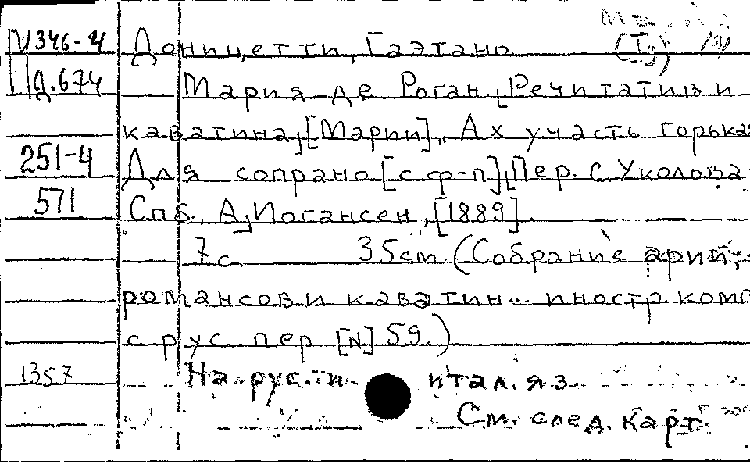 N346-4 Доницетти, Гаэтано (I)
Д.674 Мария де Роган. [Речитатив и
каватина, [Марии]. Ах участь горька
251-4 Для сопрано [с ф-п] Пер. С Уколова
571 Спб., А. Иогансен, [1889]
7с 35см (Собрание арий,
романсов и каватин иностр комп
с рус пер [N] 59.)
1357 На рус. и итал. яз.
См. след. карт.